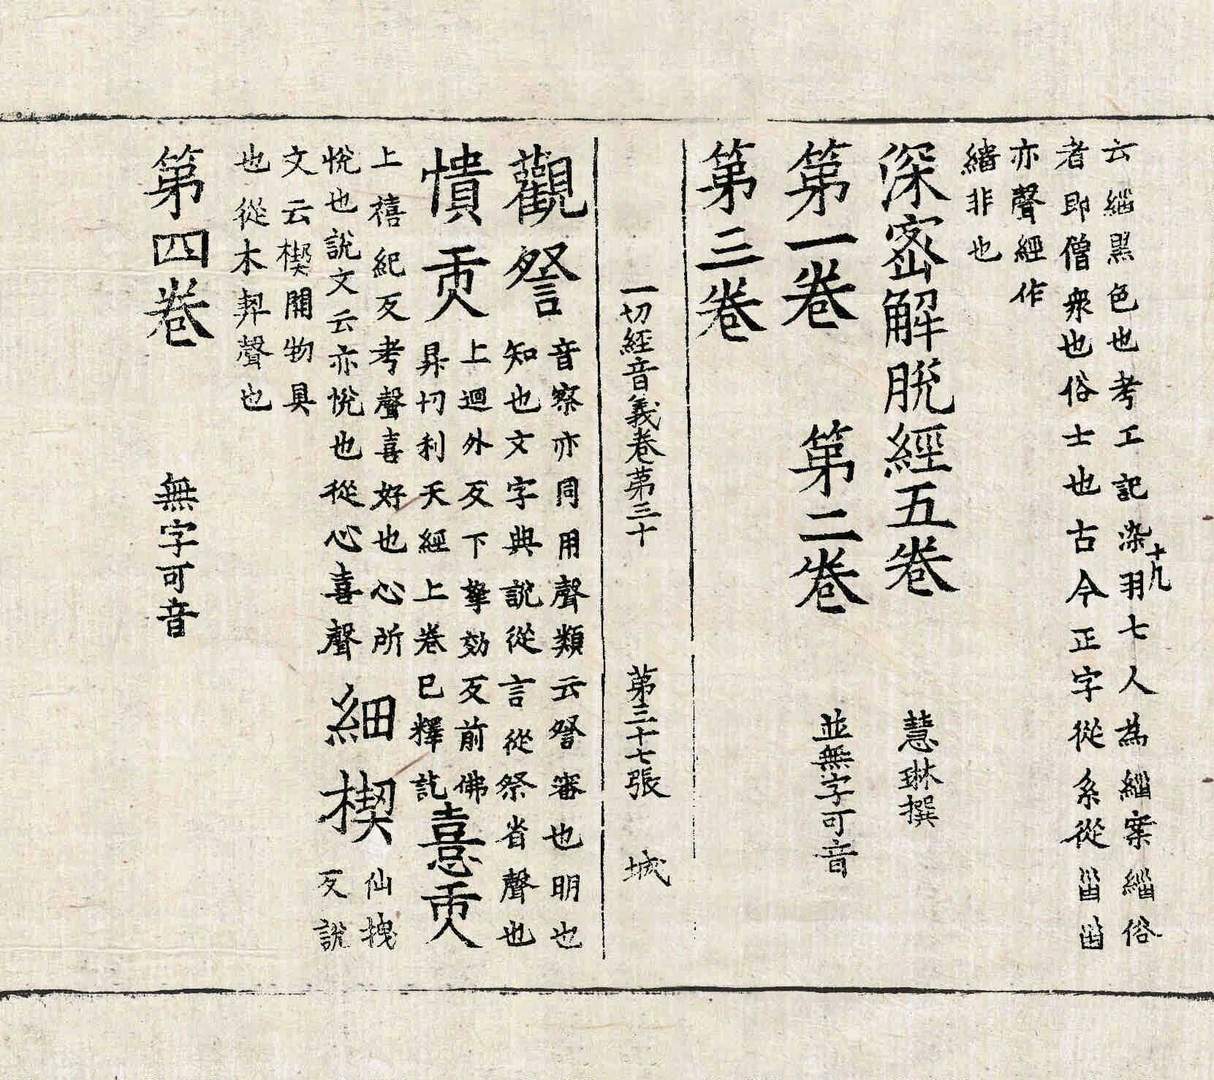 云緇黑色也考工記染羽七人為緇案緇俗
者即僧衆也俗士也古今正字從糸從甾甾
亦聲經作
非也
深密解脫經五卷 慧琳撰
第一卷 第二卷 並無字可音
第三卷
一切經音義卷第三十 第三十七張 城
觀詧 音察亦同用聲類云詧審也明也
知也文字典說從言從祭省聲也
憒𠆴 上迴外反下拏効反前佛
昇忉利天經上卷已釋訖 憙𠆴
上禧紀反考聲喜好也心所
悅也說文云亦悅也從心喜聲 細楔 仙拽
反說
文云楔開物具
也從木契聲也
第四卷 無字可音